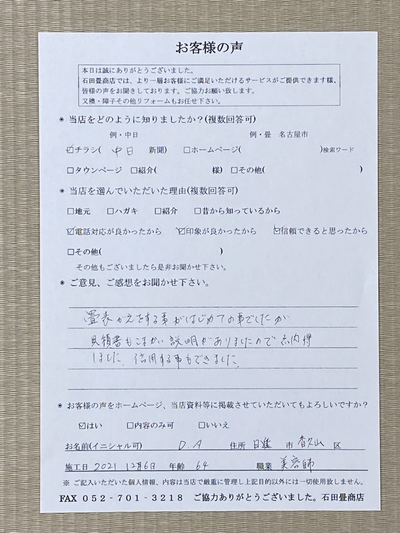 お客様の声
本日は誠にありがとうございました。
石田畳商店では、より一層お客様にご満足いただけるサービスがご提供できます様、
皆様の声をお聞きしております。ご協力お願い致します。
又襖・障子その他リフォームもお任せ下さい。
* 当店をどのように知りましたか?(複数回答可)
例・中日 例・畳 名古屋市
☑チラシ( 中日 新聞) □ホームページ( )検索ワード
□タウンページ □紹介( 様) □その他( )
* 当店を選んでいただいた理由(複数回答可)
□地元 □ハガキ □紹介 □昔から知っているから
☑電話対応が良かったから ☑印象が良かったから ☑信頼できると思ったから
□その他( )
その他もございましたら是非お聞かせ下さい。
* ご意見、ご感想をお聞かせ下さい。
畳表がえをする事がはじめての事でしたが
見積書もこまかい説明がありましたので納得
しました。信用する事もできました。
* お客様の声をホームページ、当店資料等に掲載させていただいてもよろしいですか?
☑はい □内容のみ可 □いいえ
お名前(イニシャル可) D.A 住所 日進 市 香久山 区
施工日 2021 12月6日 年齢 64 職業 美容師
※ ご記入いただいた個人情報、内容は当店で厳重に管理し上記目的以外には一切使用致しません。
FAX 052-701-3218 ご協力ありがとうございました。石田畳商店